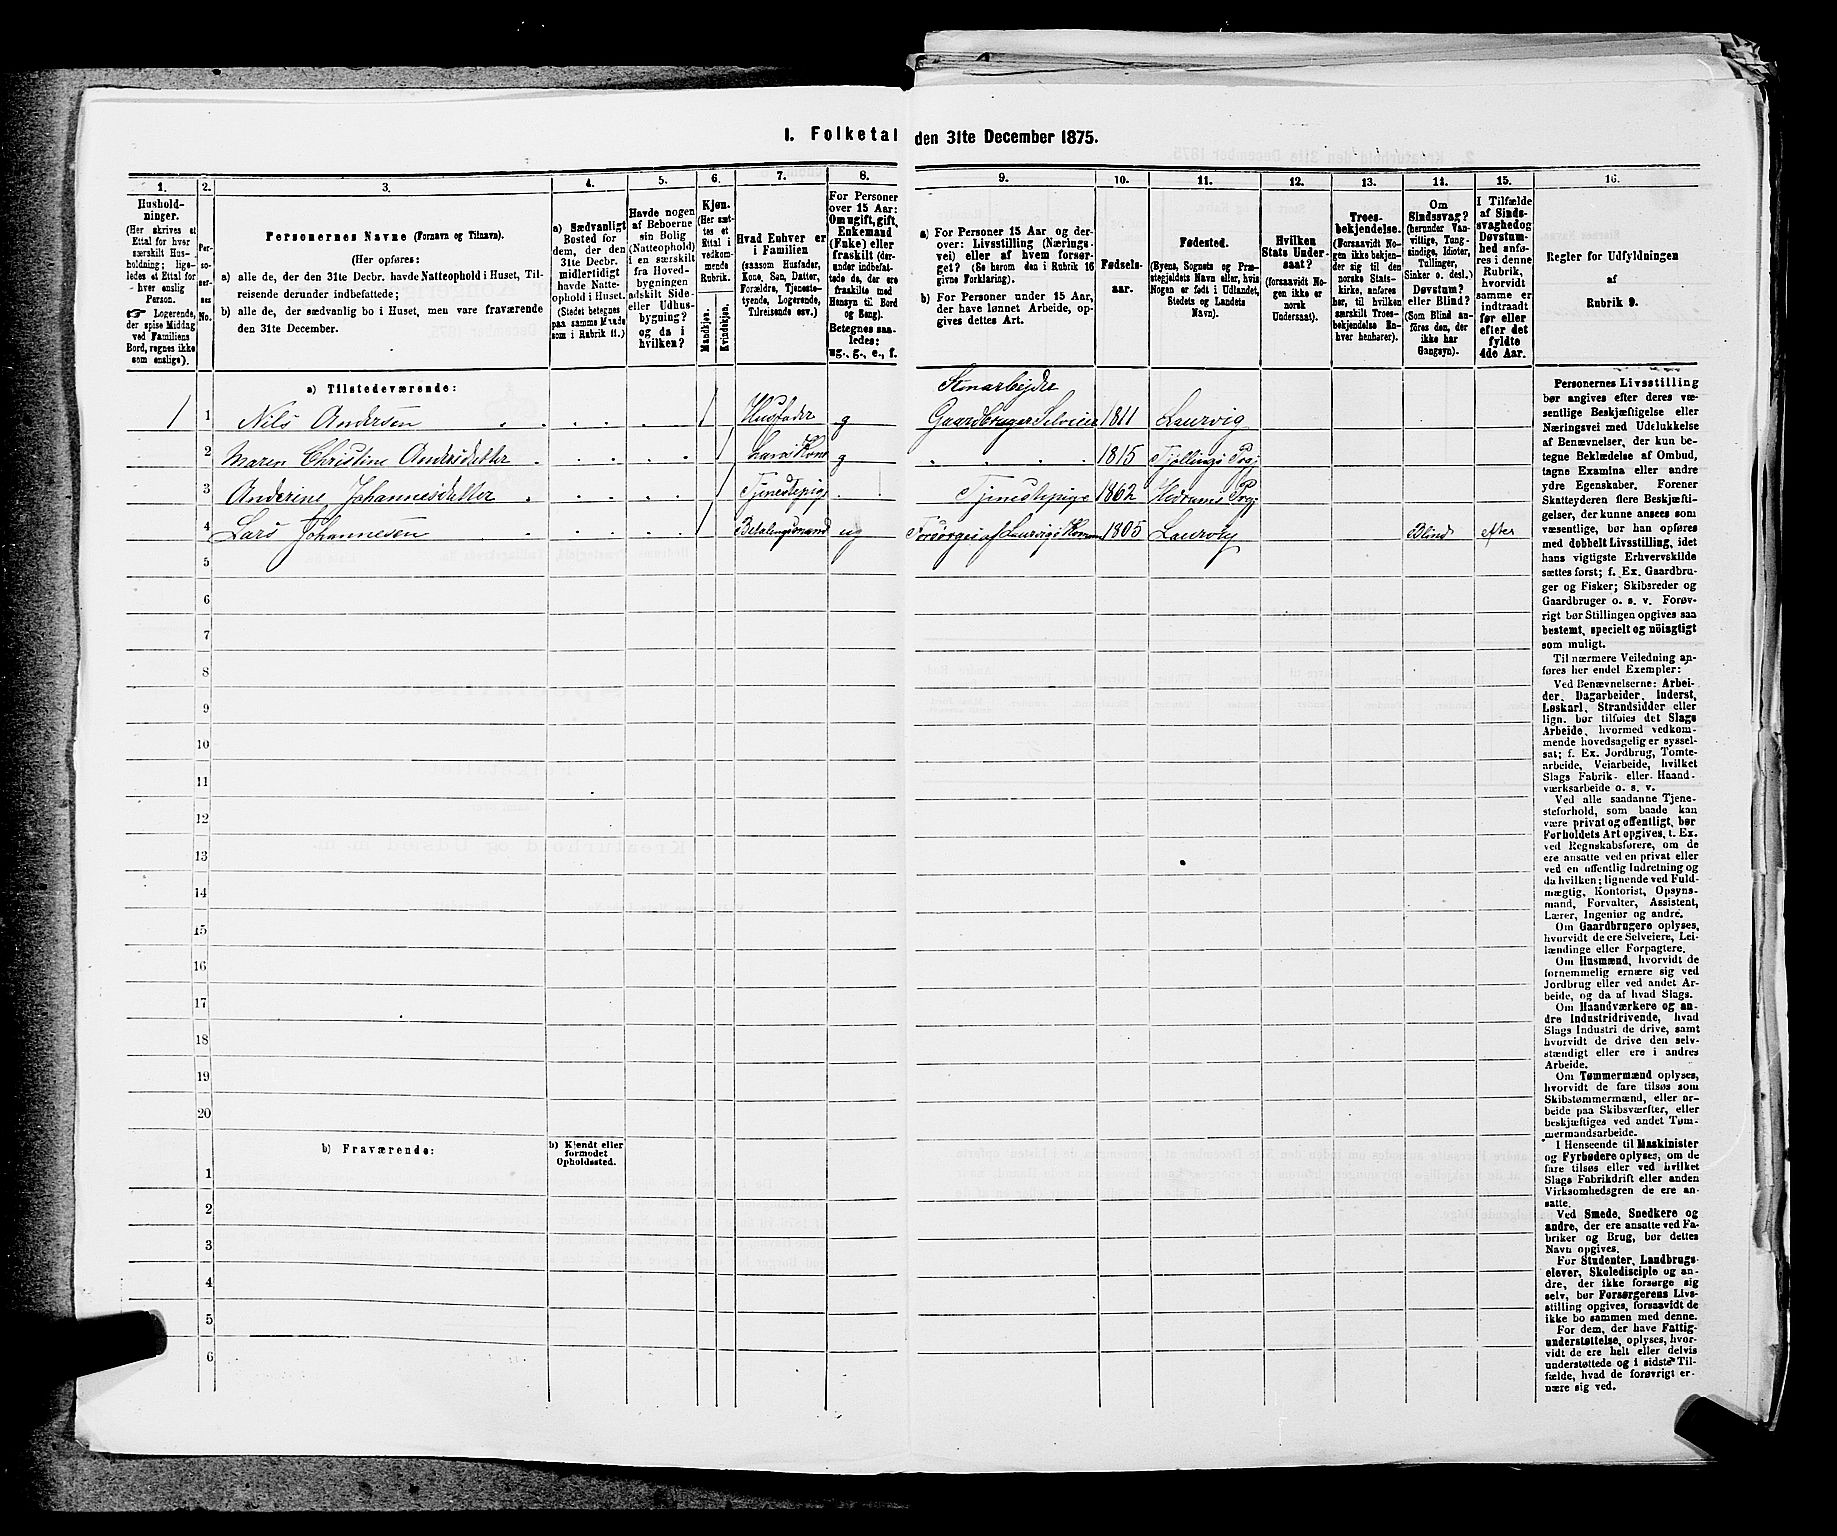 I. Folketal den 31te December 1875.
1.
Husholdninger.
(Her skrives et Ettal for hver særskilt Husholdning; ligeledes et Ettal for hver enslig Person.
☞ Logerende, der spise Middag ved Familiens Bord, regnes ikke som enslige).
2.
Personernes No.
3.
Personernes Navne (Fornavn og Tilnavn).
(Her opføres:
a) alle de, der den 31te Decbr. havde Natteophold i Huset, Tilreisende derunder indbefattede;
b) alle de, der sædvanlig bo i Huset, men vare fraværende den 31te December.
4.
a) Sædvanligt Bosted for dem, der den 31te Decbr. midlertidigt havde Natteophold i Huset.
(Stedet betegnes paa samme Maade som i Rubrik 11.)
5.
Havde nogen af Beboerne sin Bolig (Natteophold) i en særskilt fra Hovedbygningen adskilt Side- eller Udhusbygning? og da i hvilken?
6.
Kjøn.
(Her sættes et Ettal i vedkommende Rubrik.
Mandkjøn.
Kvindekjøn.
7.
Hvad Enhver er i Familien
(saasom Husfader, Kone, Søn, Datter, Forældre, Tjenestetyende, Logerende, Tilreisende osv.)
8.
For Personer over 15 Aar: Om ugift, gift, Enkemand (Enke) eller fraskilt (derunder indbefattede de, der ere fraskilte med Hensyn til Bord og Seng).
Betegnes saaledes: ug., g., e., f.
9.
a) For Personer 15 Aar og derover: Livsstilling (Næringsvei) eller af hvem forsørget? (Se herom den i Rubrik 16 givne Forklaring).
b) For Personer under 15 Aar, der have lønnet Arbeide, opgives dettes Art.
10.
Fødselsaar.
11.
Fødested.
(Byens, Sognets og Præstegjeldets Navn eller, hvis Nogen er født i Udlandet, Stedets og Landets Navn).
12.
Hvilken Stats Undersaat?
(forsaavidt Nogen ikke er norsk Undersaat).
13.
Troesbekjendelse.
(Forsaavidt Nogen ikke bekjender sig til den norske Statskirke, anføres her, til hvilken særskilt Troesbekjendelse Enhver henhører).
14.
Om Sindssvag? (herunder Vanvittige, Tungsindige, Idioter, Tullinger, Sinker o. desl.) Døvstum? eller Blind? (Som Blind anføres den, der ikke har Gangsyn).
15.
I Tilfælde af Sindssvaghed og Døvstumhed anføres i denne Rubrik, hvorvidt samme er indtraadt før eller efter det fyldte 4de Aar.
16.
Regler for Udfyldningen
af
Rubrik 9.
a) Tilstedeværende:
Stenarbejder
1 1 Nils Andersen 1 Husfader g Gaardbruger Selveier 1811 Laurvig
2 Maren Christine Andersdatter 1 hans Kone g 1815 Tjøllings Prgj
3 Anderine Johannesdatter 1 Tjenestepige Tjenestepige 1862 Hedrums Prgj
4 Lars Johannesen 1 ug Forsørges af Laurvigs Komm 1805 Laurvig Blind efter
5
6
7
8
9
10
11
12
13
14
15
16
17
18
19
20
b) Fraværende:
b) Kjendt eller formodet Opholdssted.
1
2
3
4
5
6
Personernes Livsstilling bør angives efter deres væsentlige Beskjæftigelse eller Næringsvei med Udelukkelse af Benævnelser, der kun betegne Beklædelse af Ombud, tagne Examina eller andre ydre Egenskaber. Forener Skatteyderen flere Beskjæftigelser, der kunne ansees som væsentlige, bør han opføres med dobbelt Livsstilling, idet hans vigtigste Erhvervskilde sættes først; f. Ex. Gaardbruger og Fisker; Skibsreder og Gaardbruger o. s. v. Forøvrigt bør Stillingen opgives saa bestemt, specielt og nöiagtigt som muligt.
Til nærmere Veiledning anføres her endel Exempler:
Ved Benævnelserne: Arbeider, Dagarbeider, Inderst, Løskarl, Strandsidder eller lign. bør tilføies det Slags Arbeide, hvormed vedkommende hovedsagelig er sysselsat; f. Ex. Jordbrug, Tomtearbeide, Veiarbeide, hvilket Slags Fabrik- eller Haandværksarbeide o. s. v.
Ved alle saadanne Tjenesteforhold, som baade kan være privat og offentligt, bør Forholdets Art opgives, t. Ex. ved Regnskabsførere, om de ere ansatte ved en privat eller ved en offentlig Indretning og da hvilken; lignende ved Fuldmægtig, Kontorist, Opsynsmand, Forvalter, Assistent, Lærer, Ingeniør og andre.
Om Gaardbrugere oplyses, hvorvidt de ere Selveiere, Leilændinge eller Forpagtere.
Om Husmænd, hvorvidt de fornemmelig ernære sig ved Jordbrug eller ved andet Arbeide, og da af hvad Slags.
Om Haandværkere og andre Industridrivende, hvad Slags Industri de drive, samt hvorvidt de drive den selvstændigt eller ere i andres Arbeide.
Om Tømmermænd oplyses, hvorvidt de fare tilsøs som Skibstømmermænd, eller arbeide paa Skibsværfter, eller beskjæftiges ved andet Tømmermandsarbeide.
I Henseende til Maskinister og Fyrbødere oplyses, om de fare tilsøs eller ved hvilket Slags Fabrikdrift eller anden Virksomhedsgren de ere ansatte.
Ved Smede, Snedkere og andre, der ere ansatte ved Fabriker og Brug, bør dettes Navn opgives.
For Studenter, Landbrugselever, Skoledisciple og andre, der ikke forsørge sig selv, bør Forsørgerens Livsstilling opgives, forsaavidt de ikke bo sammen med denne.
For dem, der have Fattigunderstøttelse, oplyses, hvorvidt de ere helt eller delvis understøttede og i sidste Tilfælde, hvad de forøvrigt ernære sig ved.